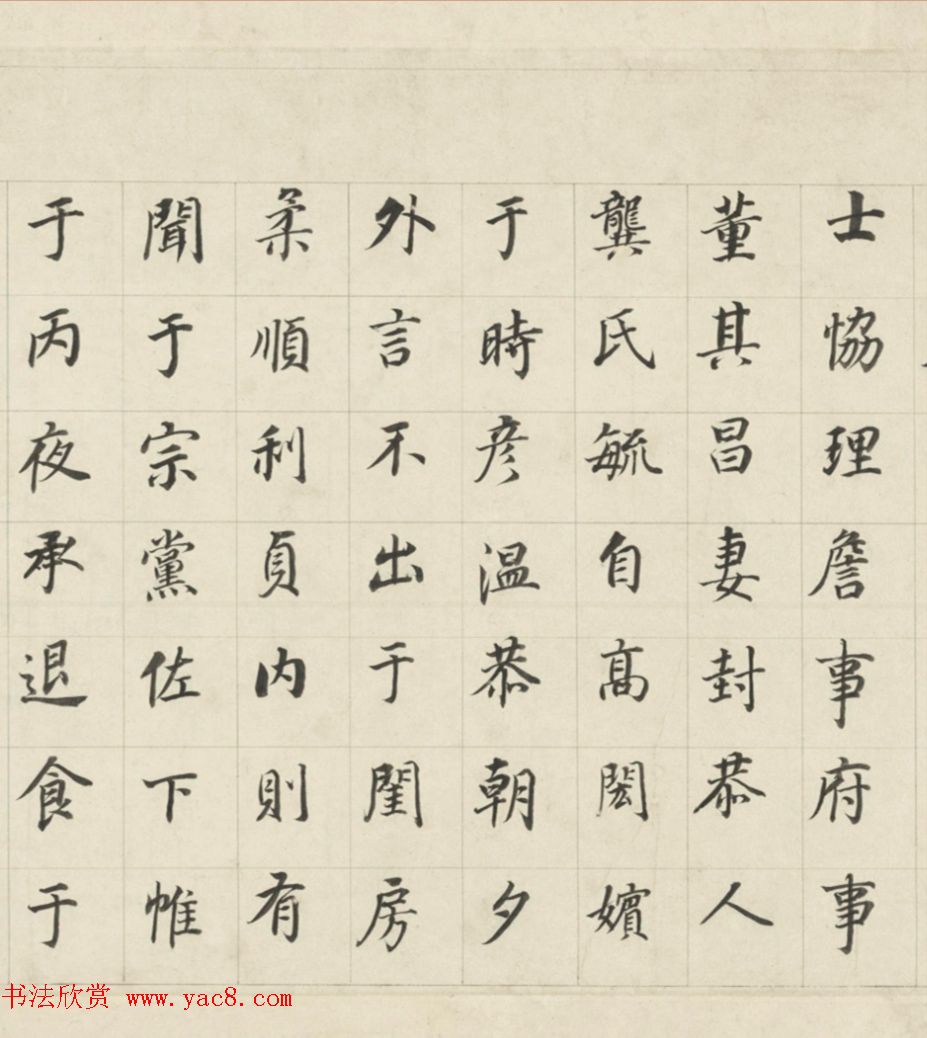 士協理詹事府事
董其昌妻封恭人
龔氏毓自高閎嬪
于時彦温恭朝夕
外言不出于閨房
柔順利貞内則有
聞于宗黨佐下帷
于丙夜承退食于
书法欣赏 www.yac8.com